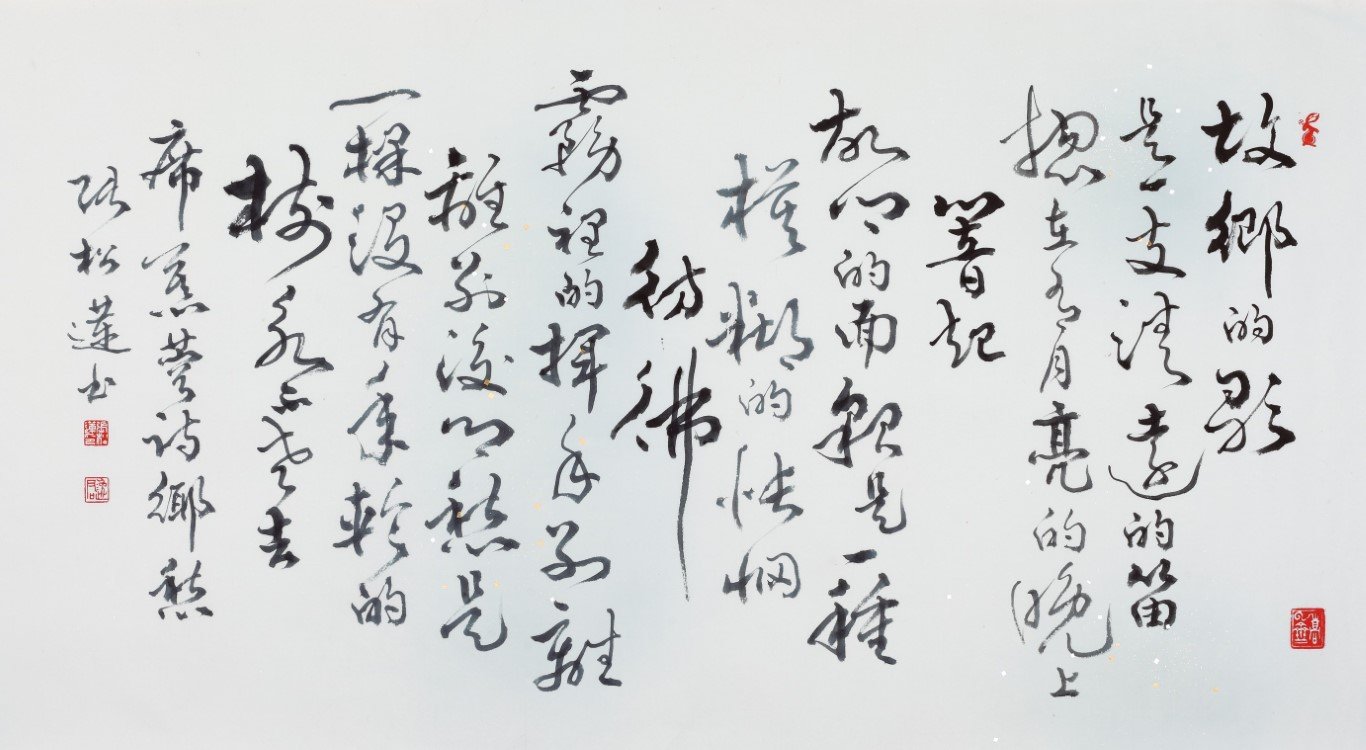 故鄉的歌
是一支清遠的笛
總在有月亮的晚上
響起
故鄉的面貌是一種
模糊的悵惘
彷彿
霧裡的揮手別離
離別後鄉愁是
一棵沒有年輪的
樹永不老去
席慕蓉詩鄉愁
張松蓮書